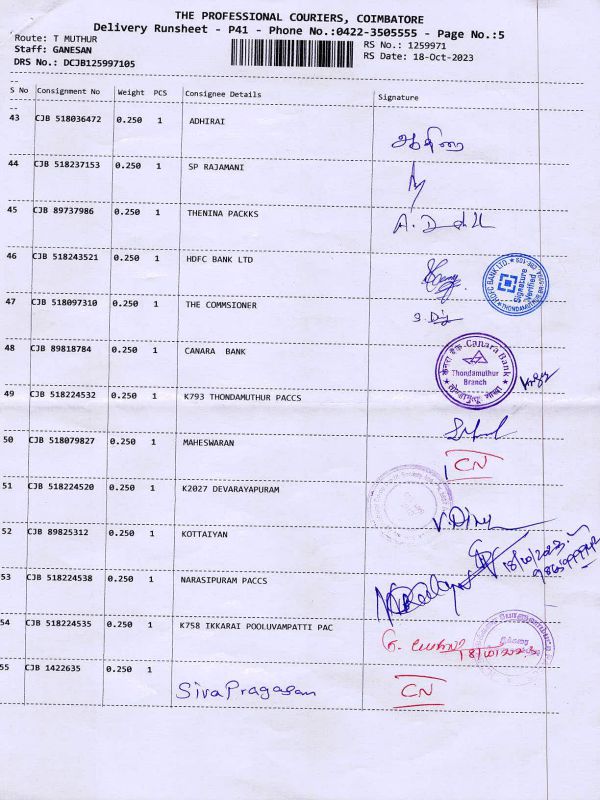 THE PROFESSIONAL COURIERS, COIMBATORE
Delivery Runsheet - P41 - Phone No.:0422-3505555 - Page No.:5
Route: T MUTHUR
Staff: GANESAN
DRS No.: DCJB125997105
RS No.: 1259971
RS Date: 18-Oct-2023
S No Consignment No Weight PCS Consignee Details Signature
43 CJB 518036472 0.250 1 ADHIRAI
ஆதிரை
44 CJB 518237153 0.250 1 SP RAJAMANI
45 CJB 89737986 0.250 1 THENINA PACKKS
46 CJB 518243521 0.250 1 HDFC BANK LTD
HDFC BANK LTD.
Signature
Verified
47 CJB 518097310 0.250 1 THE COMMSIONER
48 CJB 89818784 0.250 1 CANARA BANK
केनरा बैंक Canara Bank
Thondamuthur
Branch
49 CJB 518224532 0.250 1 K793 THONDAMUTHUR PACCS
50 CJB 518079827 0.250 1 MAHESWARAN
CN
51 CJB 518224520 0.250 1 K2027 DEVARAYAPURAM
52 CJB 89825312 0.250 1 KOTTAIYAN
18/10/2023
53 CJB 518224538 0.250 1 NARASIPURAM PACCS
54 CJB 518224535 0.250 1 K758 IKKARAI POOLUVAMPATTI PAC
55 CJB 1422635 0.250 1
SivaPragasan
CN